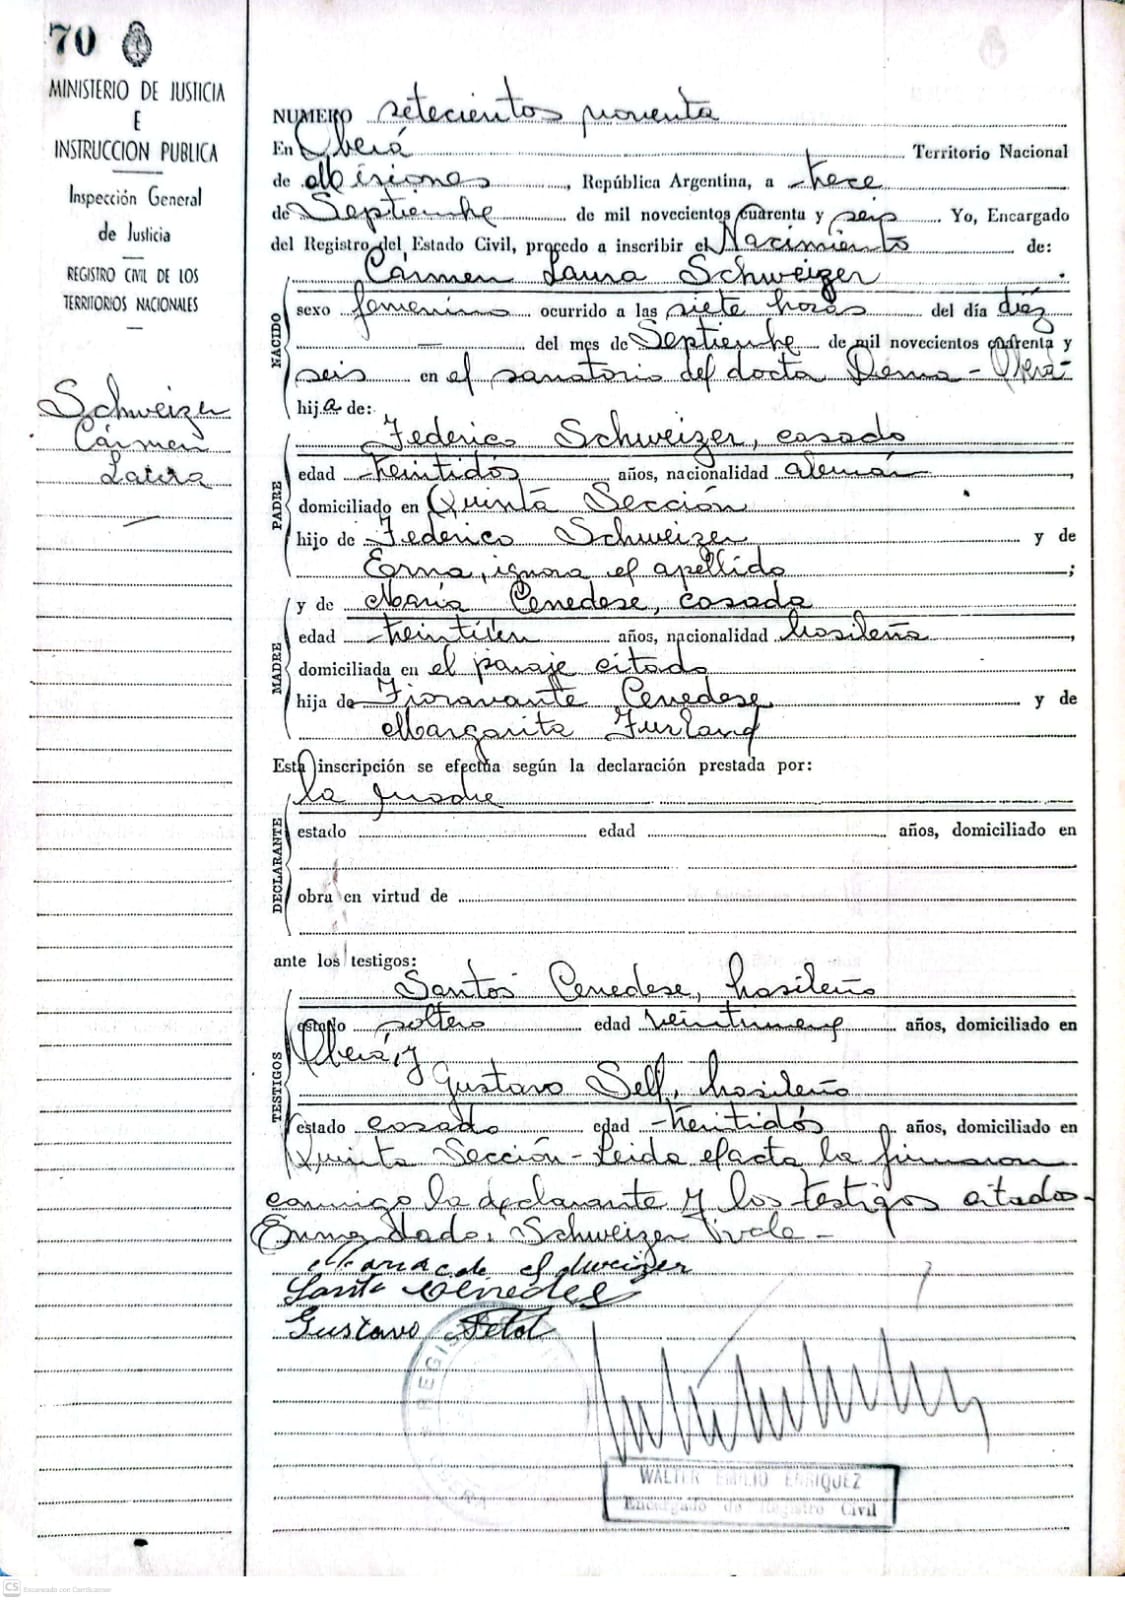 70
MINISTERIO DE JUSTICIA
E
INSTRUCCION PUBLICA
Inspección General
de Justicia
REGISTRO CIVIL DE LOS
TERRITORIOS NACIONALES
Schweizer
Cármen
Laura
NUMERO setecientos noventa
En Oberá Territorio Nacional
de Misiones, República Argentina, a trece
de Septiembre de mil novecientos cuarenta y seis Yo, Encargado
del Registro del Estado Civil, procedo a inscribir el Nacimiento de:
NACIDO
Cármen Laura Schweizer
sexo femenino ocurrido a las siete horas del día diéz
del mes de Septiembre de mil novecientos cuarenta y
seis en el sanatorio del docta - Oberá-
hija de:
PADRE
Federico Schweizer, casado
edad treintidós años, nacionalidad alemán,
domiciliado en Quinta Sección
hijo de Federico Schweizer y de
Erna, ignora el apellido;
MADRE
y de María Cenedese, casada
edad treintiún años, nacionalidad brasileña,
domiciliada en el paraje citado
hija de Fioravante Cenedese y de
Margarita Furland
Esta inscripción se efectúa según la declaración prestada por:
DECLARANTE
la madre
estado edad años, domiciliado en
obra en virtud de
ante los testigos:
TESTIGOS
Santos Cenedese, brasileño
estado soltero edad veintinueve años, domiciliado en
Oberá, y
Gustavo Sell, brasileño
estado casado edad treintidós años, domiciliado en
Quinta Sección - Leida el acta la firmaron
conmigo la declarante y los testigos citados-
Enmendado: Schweizer Vale-
Maria C de Schweizer
Santo Cenedese
Gustavo
REGIS
WALTER EMILIO ENRIQUEZ
Encargado de Registro Civil
CS Escaneado con CamScanner